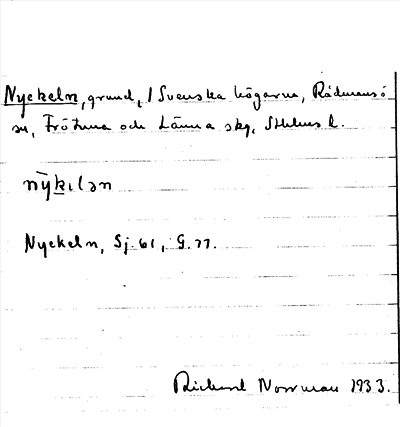 Nyckeln, grund, i Svenska högarna, Rådmansö
sn, Frötuna och Länna skg, Sthlms l.
nỳkılən
Nyckeln, Sj. 61, G. 77.
Rickard Norrman 1933.